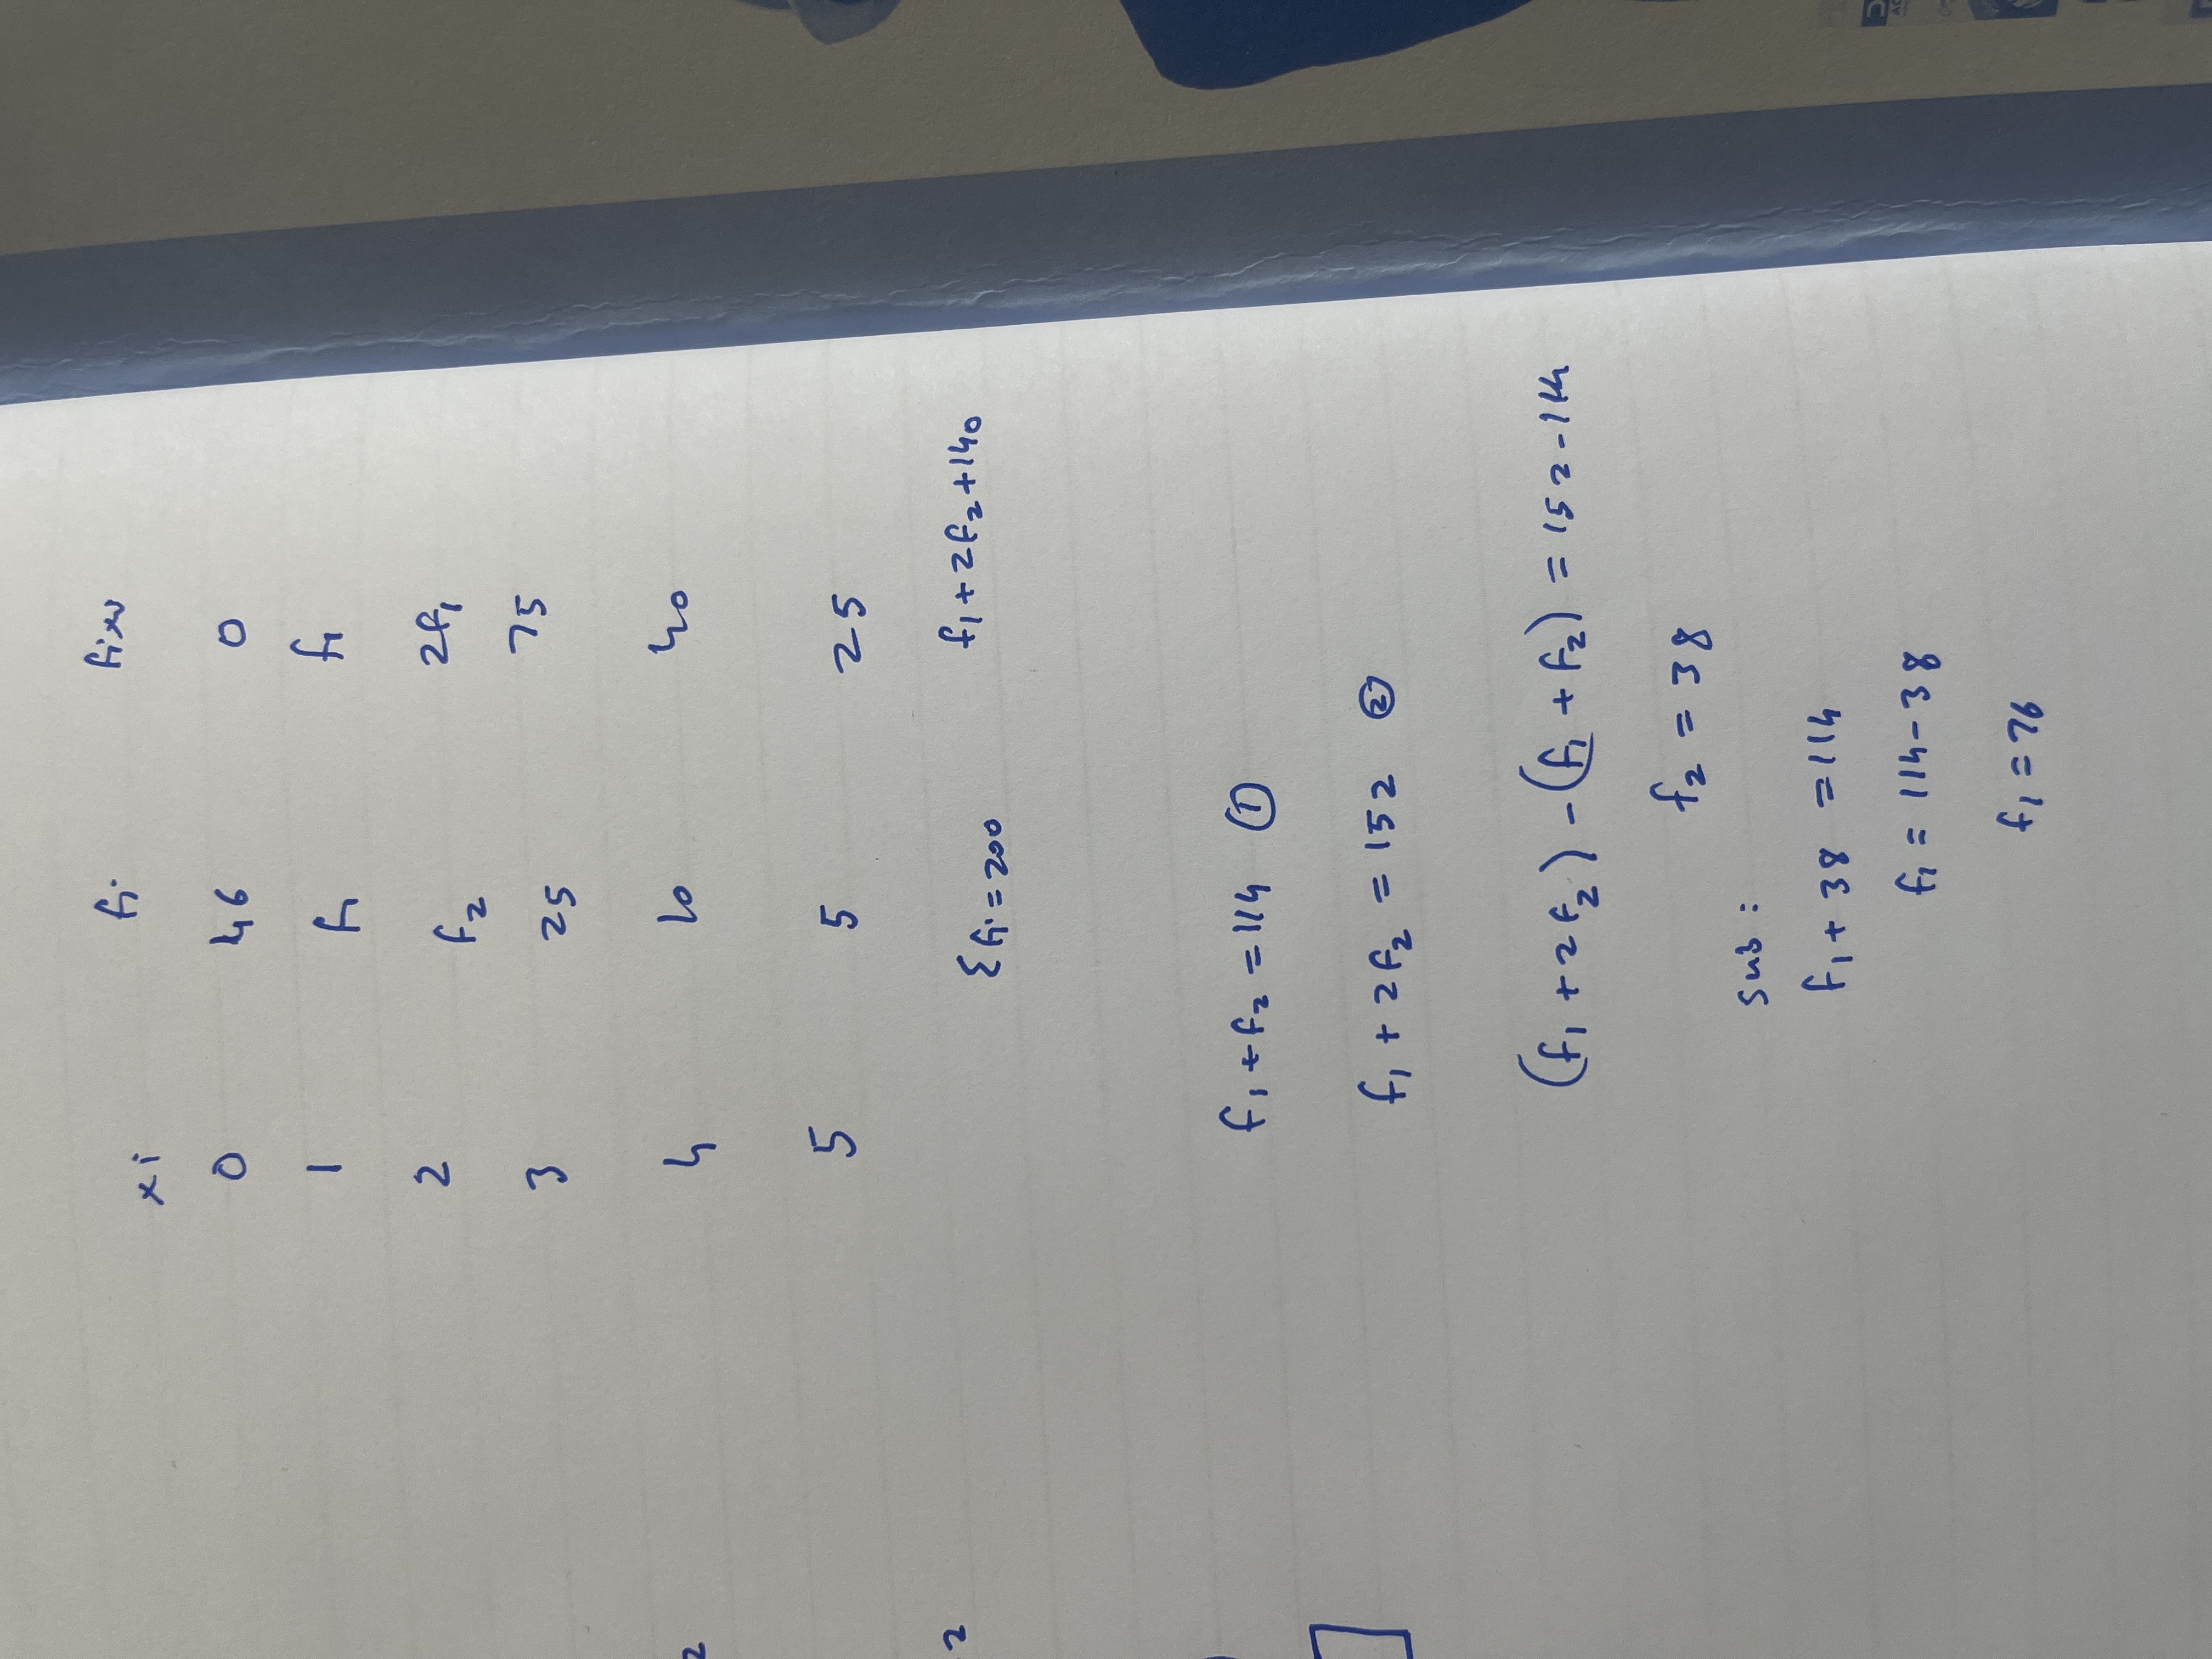 xi fi fixi
0 46 0
1 f1 f1
2 f2 2f1
3 25 75
4 10 40
5 5 25
Σfi=200 f1+2f2+140
f1+f2=114 ①
f1+2f2=152 ②
(f1+2f2)-(f1+f2)=152-114
f2=38
Sub:
f1+38=114
f1=114-38
f1=76
2
2